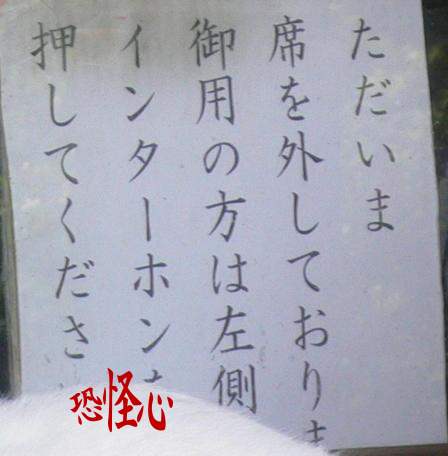 ただいま
席を外しており
御用の方は左側
インターホン
押してくださ
恐怪心